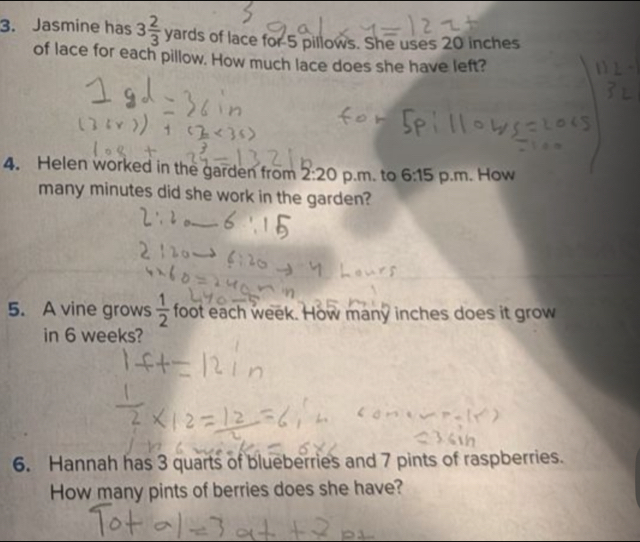 3 gal x 4 = 12 qt
3. Jasmine has 3 2/3 yards of lace for 5 pillows. She uses 20 inches
of lace for each pillow. How much lace does she have left?
1 yd = 36 in
for 5 pillows =
= 100
4. Helen worked in the garden from 2:20 p.m. to 6:15 p.m. How
many minutes did she work in the garden?
2:20 — 6:15
2:20 → 6:20 → 4 hours
4x60 = 240 min
240-5
5. A vine grows 1/2 foot each week. How many inches does it grow
in 6 weeks?
1 ft = 12 in
1/2 x 12 = 12/2 = 6 in
= 36 in
in 6 weeks = 6x6
6. Hannah has 3 quarts of blueberries and 7 pints of raspberries.
How many pints of berries does she have?
Total = 3 qt + 7 pt